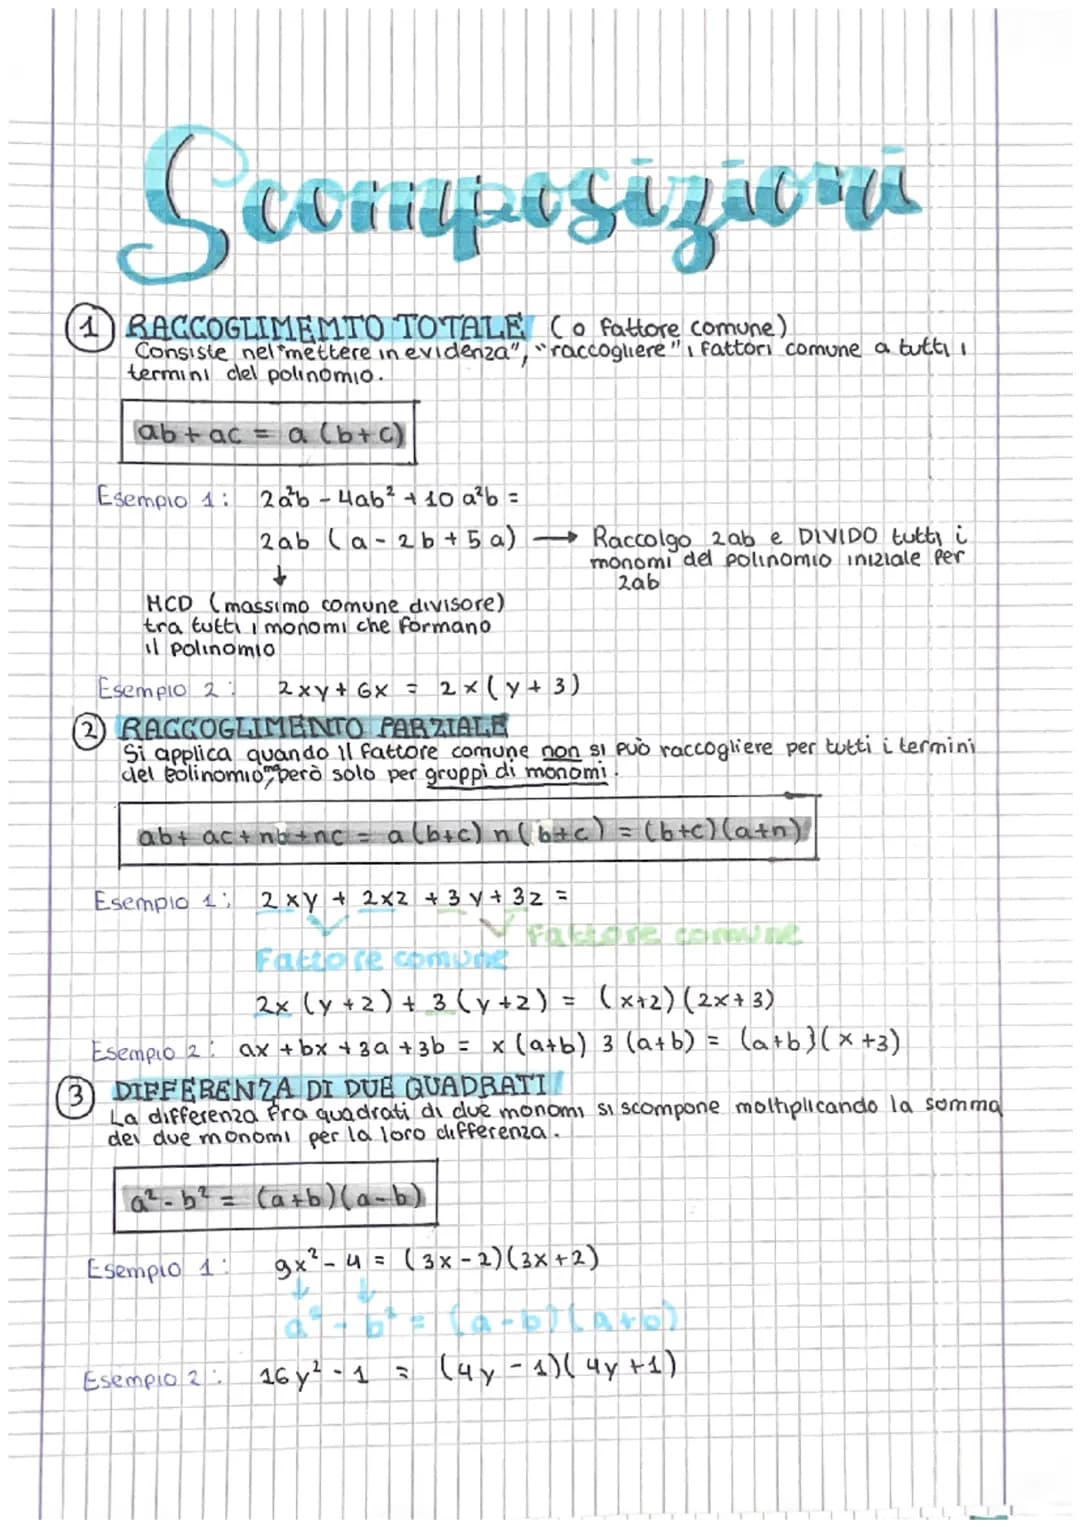 Scomposizioni
1 RACCOGLIMEMTO TOTALE (o fattore comune)
Consiste nel "mettere in evidenza", "raccogliere" i fattori comune a tutti i
termini del polinomio.
ab + ac = a (b+c)
Esempio 1: 2a²b - 4ab² + 10 a²b =
2ab (a - 2b + 5a) → Raccolgo 2ab e DIVIDO tutti i
monomi del polinomio iniziale per
2ab
↓
MCD (massimo comune divisore)
tra tutti i monomi che formano
il polinomio
Esempio 2: 2xy + 6x = 2x (y + 3)
2 RACCOGLIMENTO PARZIALE
Si applica quando il fattore comune non si può raccogliere per tutti i termini
del polinomio, ma però solo per gruppi di monomi.
ab + ac + nb + nc = a (b+c) n (b+c) = (b+c)(a+n)
Esempio 1: 2xy + 2xz + 3y + 3z =
Fattore comune
Fattore comune
2x (y+z) + 3 (y+z) = (x+z)(2x+3)
Esempio 2: ax + bx + 3a + 3b = x (a+b) 3 (a+b) = (a+b)(x+3)
3 DIFFERENZA DI DUE QUADRATI
La differenza fra quadrati di due monomi si scompone moltiplicando la somma
dei due monomi per la loro differenza.
a² - b² = (a+b)(a-b)
Esempio 1: 9x² - 4 = (3x - 2)(3x + 2)
↓ ↓
a² - b² = (a-b)(a+b)
Esempio 2: 16y² - 1 = (4y - 1)(4y + 1)